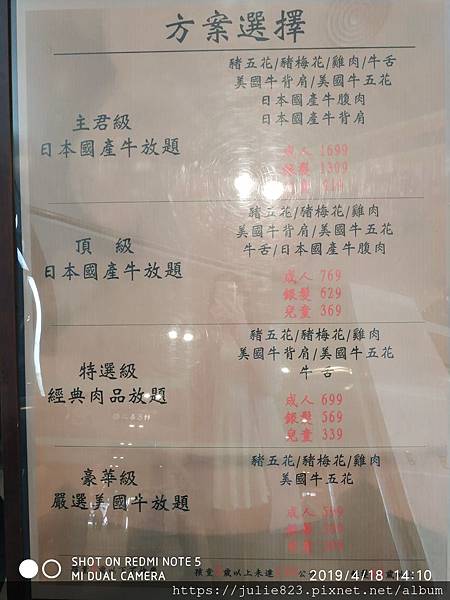 方案選擇
主君級
日本國產牛放題
豬五花/豬梅花/雞肉/牛舌
美國牛背肩/美國牛五花
日本國產牛腹肉
日本國產牛背肩
成人 1699
銀髮 1309
頂 級
日本國產牛放題
豬五花/豬梅花/雞肉
美國牛背肩/美國牛五花
牛舌/日本國產牛腹肉
成人 769
銀髮 629
兒童 369
特選級
經典肉品放題
豬五花/豬梅花/雞肉
美國牛背肩/美國牛五花
牛舌
成人 699
銀髮 569
兒童 339
豪華級
嚴選美國牛放題
豬五花/豬梅花/雞肉
美國牛五花
成人
歲以上未達
SHOT ON REDMI NOTE 5
MI DUAL CAMERA
2019/4/18 14:10
https://julie823.pixnet.net/album